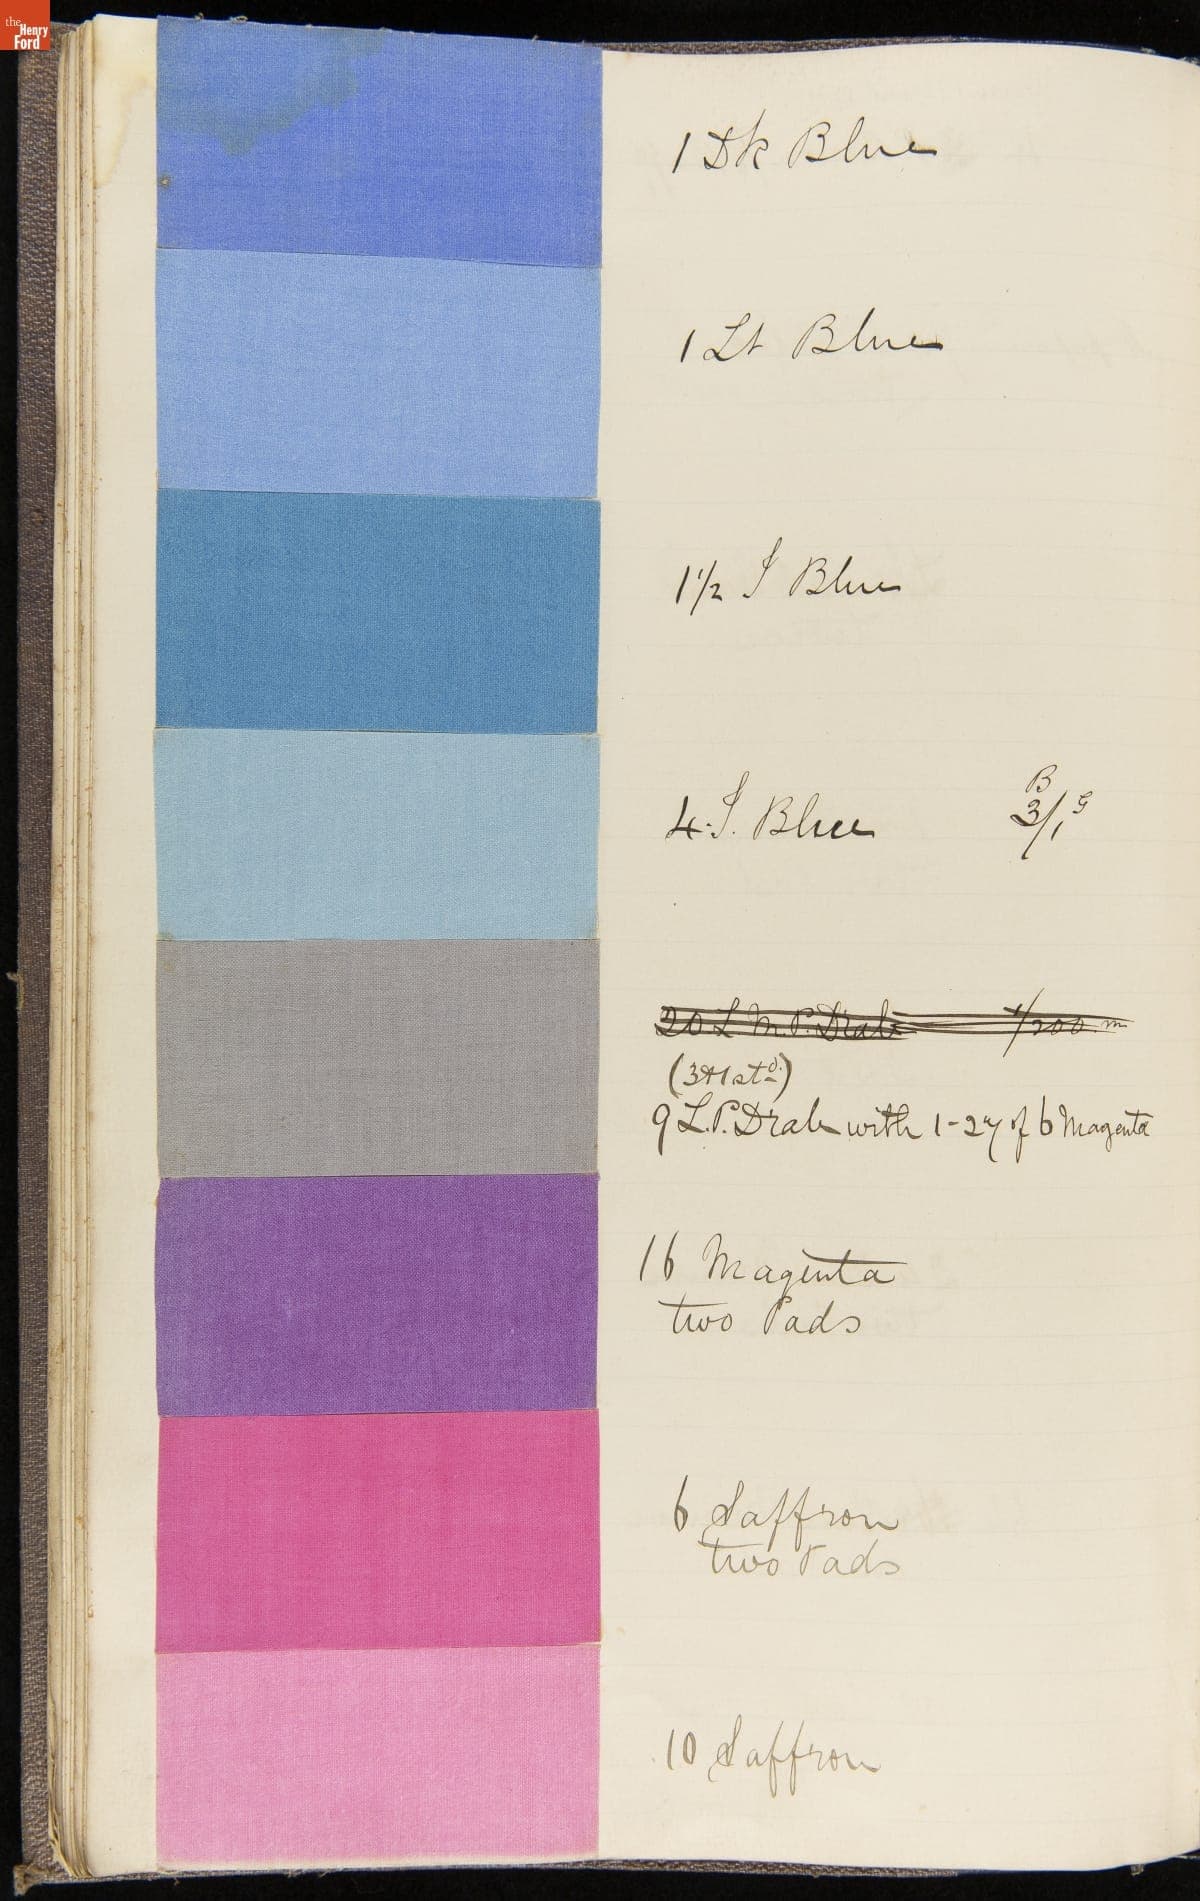 the Henry Ford
1 Dk Blue
1 Lt Blue
1 1/2 I Blue
4. I. Blue
B
3/1 G
20 L M. P. Drab 1/200 m
(3 1st d.)
9 L. P. Drab with 1-27 of 6 Magenta
16 Magenta
two Pads
6 Saffron
two Pads
10 Saffron